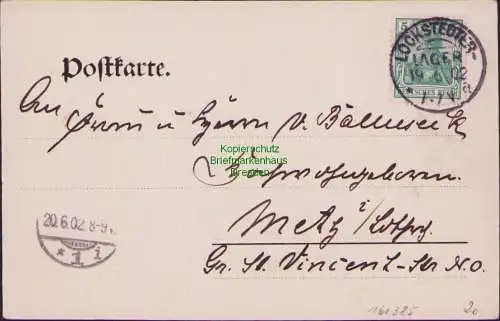 LOCKSTEDTER-
LAGER
19 6 02
* 7-7 V *
Postkarte.
An Frau u Herrn v.
Kopierschutz
Briefmarkenhaus
Dresden
Hochwohlgeboren.
Metz i/Lothrg.
20.6.02.8-9
* 1 i
Gr. St. Vincent-Str No.
161385
20